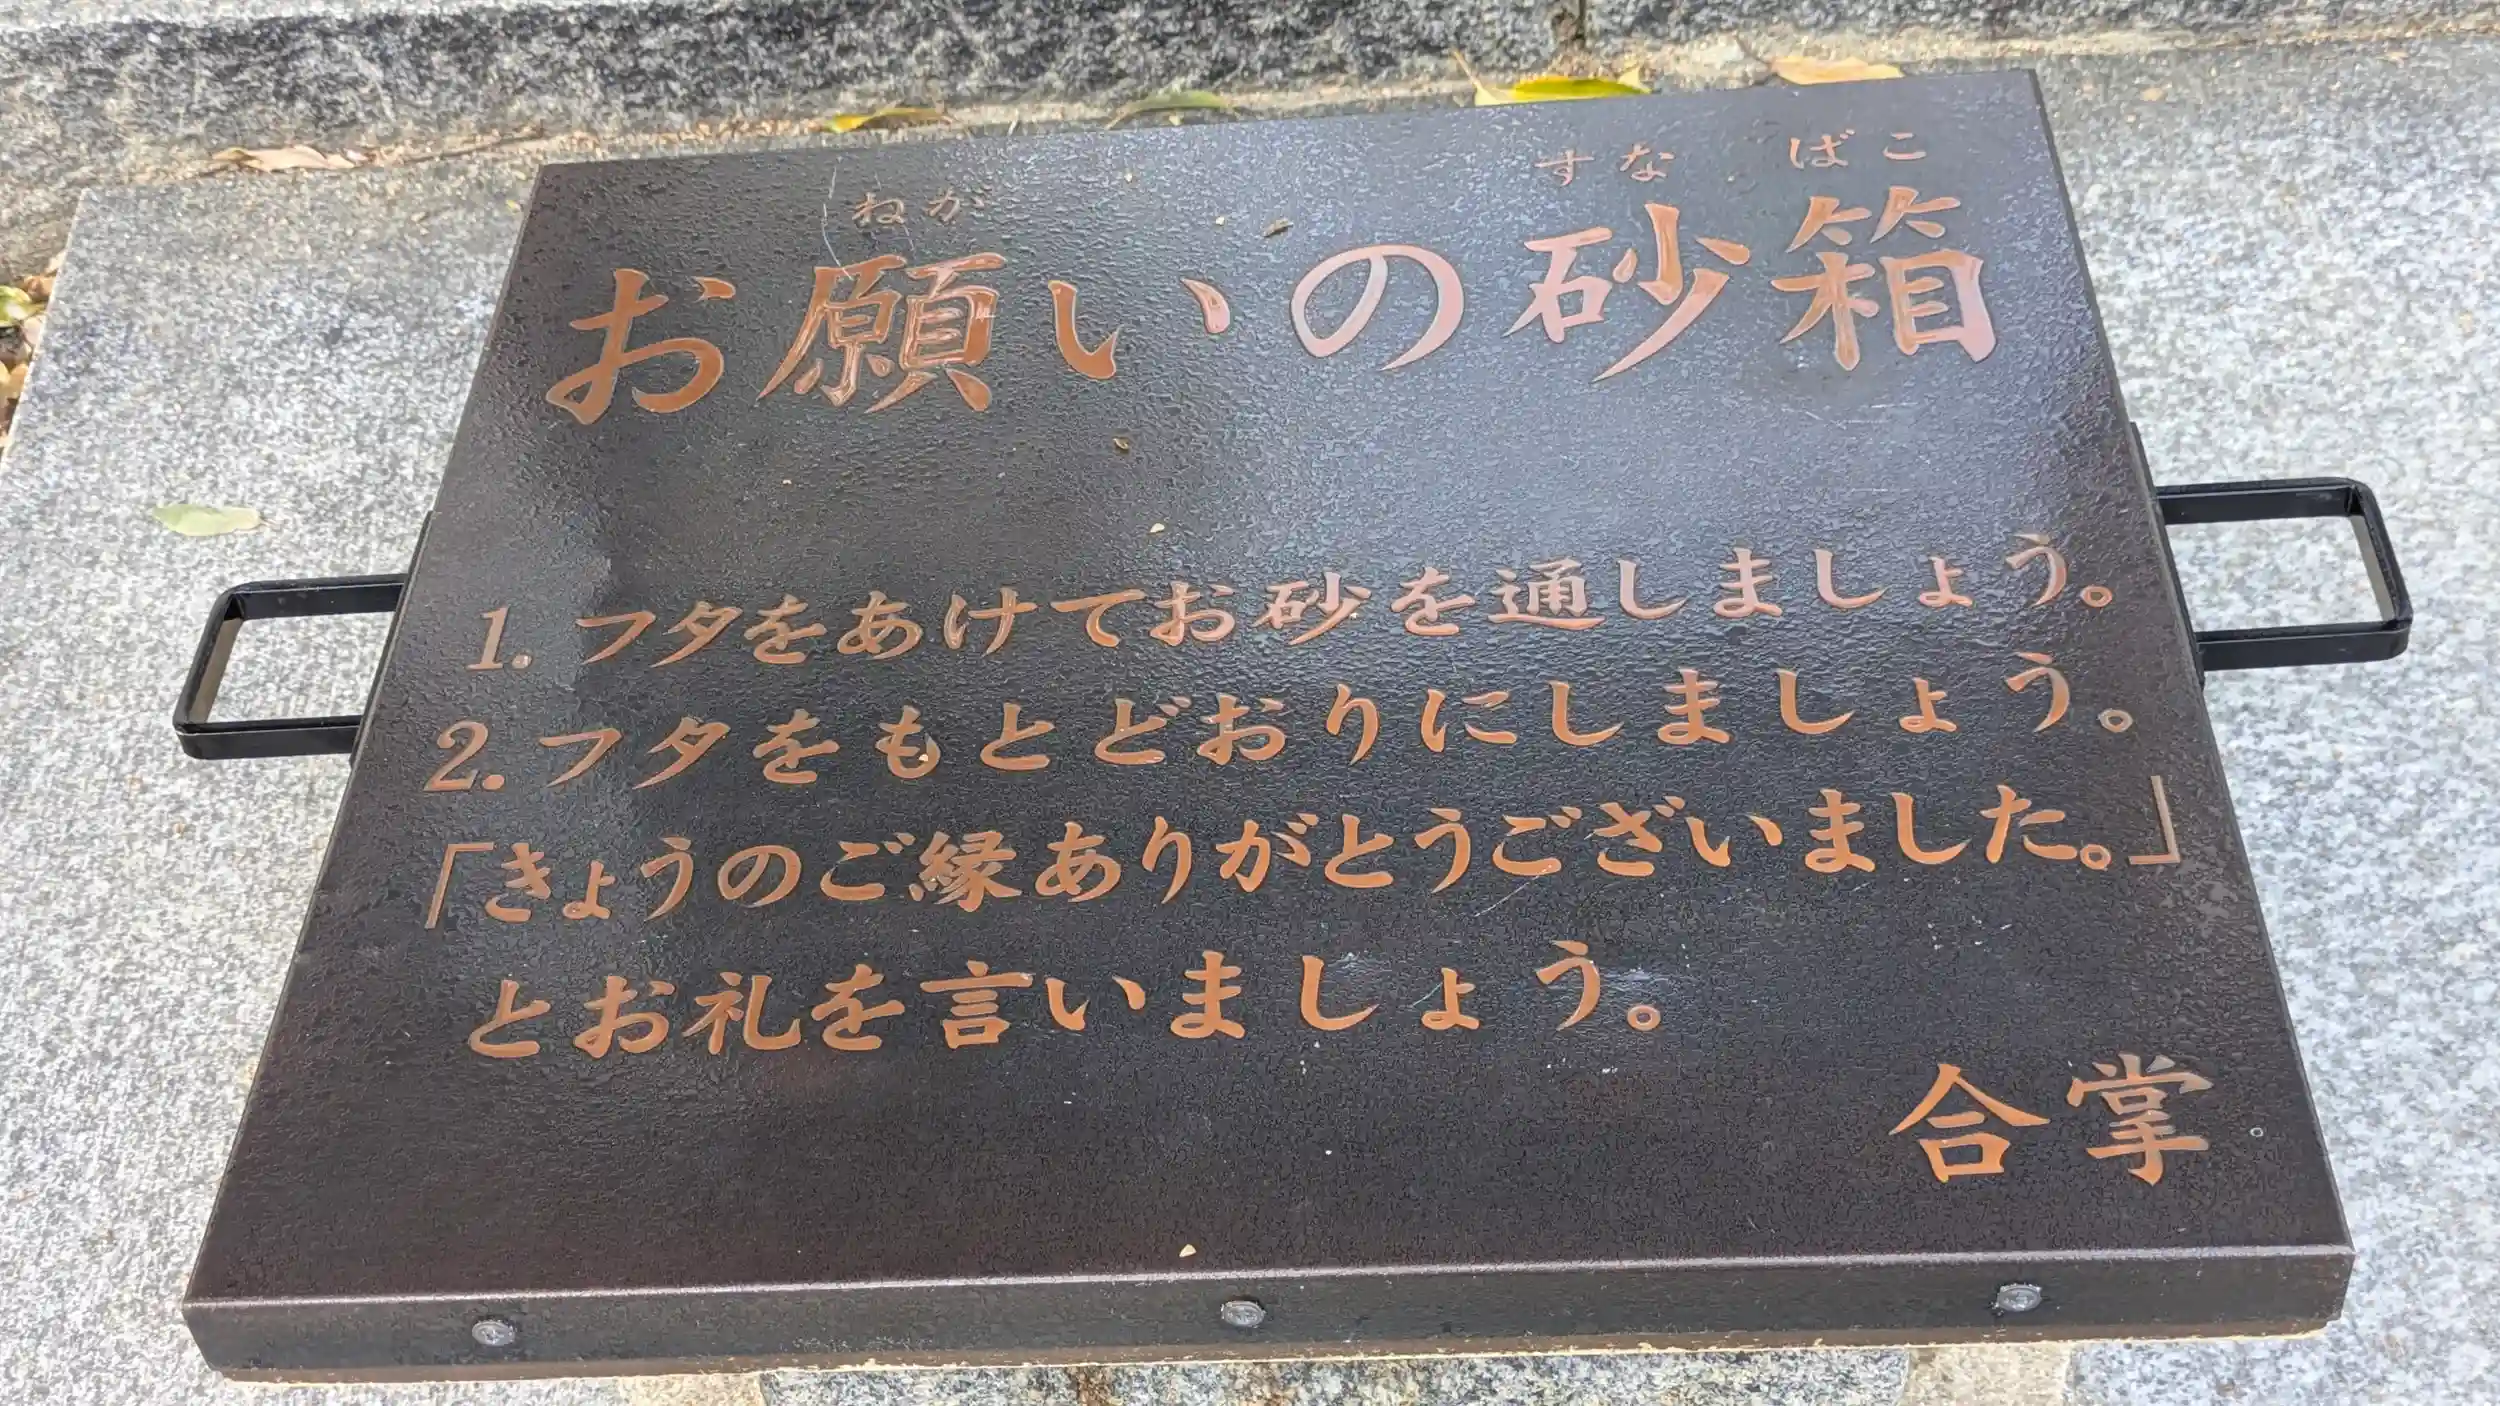 ねが すなばこ
お願いの砂箱
1. フタをあけてお砂を通しましょう。
2. フタをもとどおりにしましょう。
「きょうのご縁ありがとうございました。」
とお礼を言いましょう。
合掌